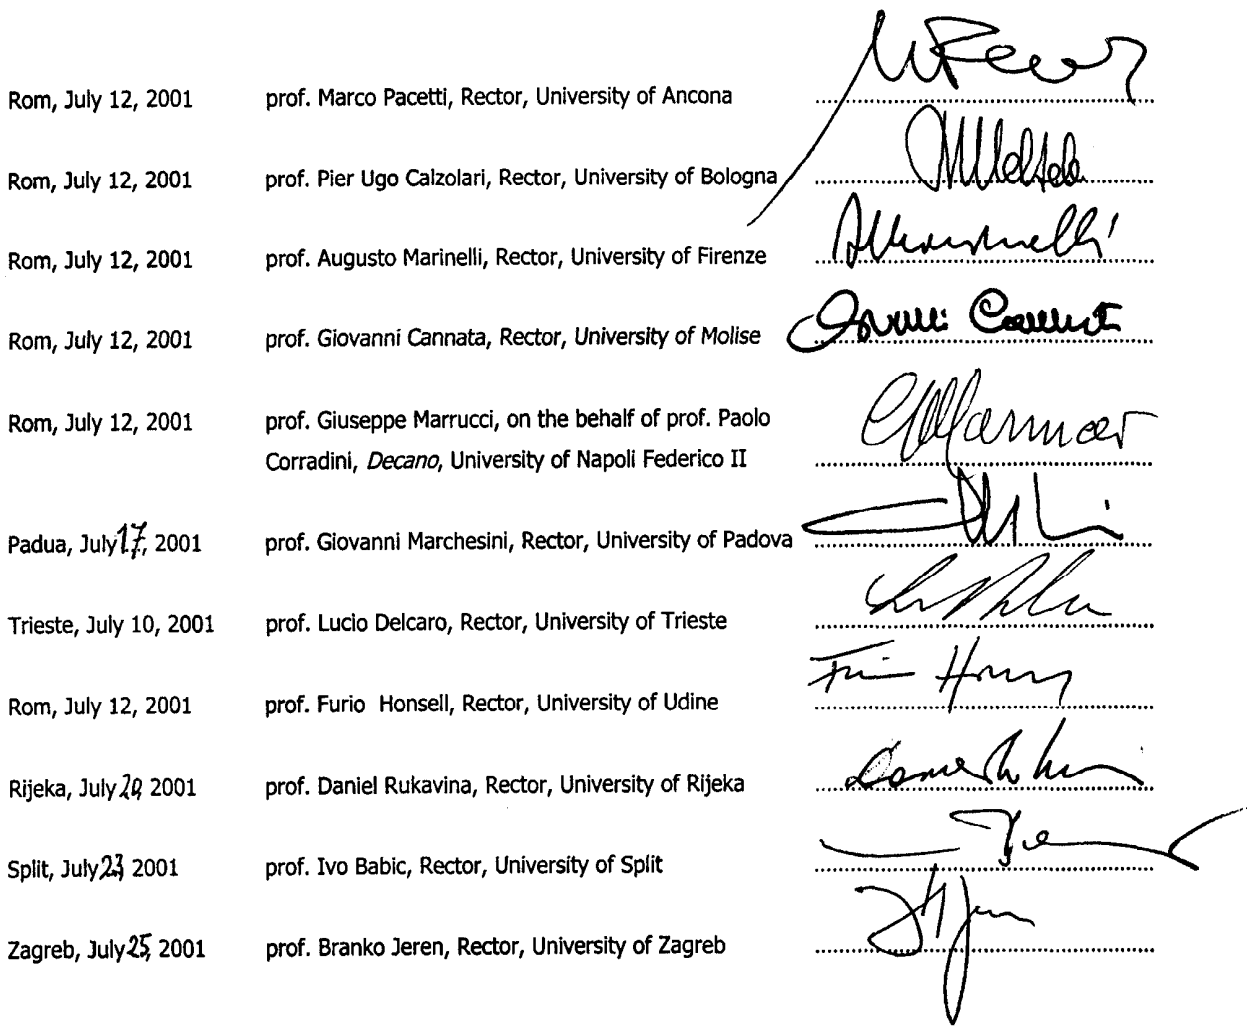 Rom, July 12, 2001 prof. Marco Pacetti, Rector, University of Ancona
Rom, July 12, 2001 prof. Pier Ugo Calzolari, Rector, University of Bologna
Rom, July 12, 2001 prof. Augusto Marinelli, Rector, University of Firenze
Rom, July 12, 2001 prof. Giovanni Cannata, Rector, University of Molise
Rom, July 12, 2001 prof. Giuseppe Marrucci, on the behalf of prof. Paolo
Corradini, Decano, University of Napoli Federico II
Padua, July 17, 2001 prof. Giovanni Marchesini, Rector, University of Padova
Trieste, July 10, 2001 prof. Lucio Delcaro, Rector, University of Trieste
Rom, July 12, 2001 prof. Furio Honsell, Rector, University of Udine
Rijeka, July 20, 2001 prof. Daniel Rukavina, Rector, University of Rijeka
Split, July 23, 2001 prof. Ivo Babic, Rector, University of Split
Zagreb, July 25, 2001 prof. Branko Jeren, Rector, University of Zagreb